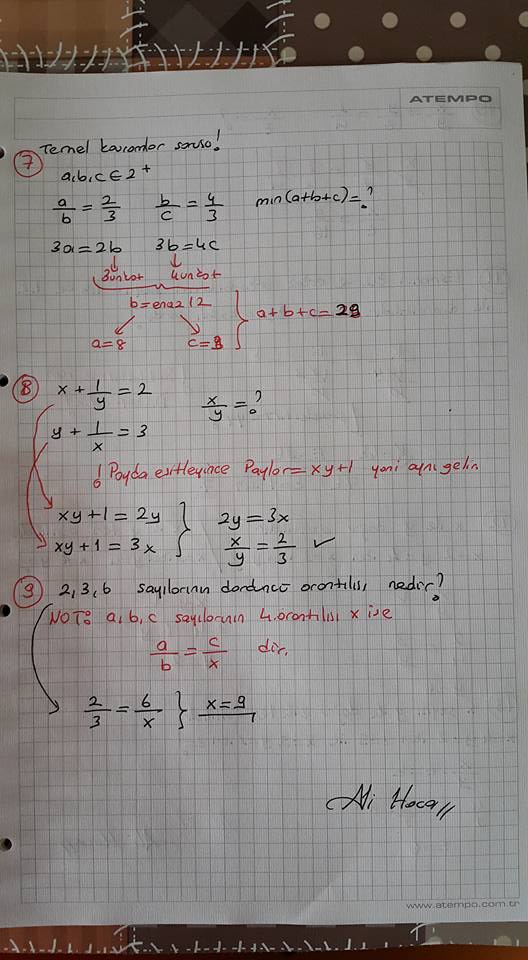 ATEMPO
7 Temel kavramlar sorusu!
a,b,c ∈ Z⁺
a/b = 2/3 b/c = 4/3 min(a+b+c)=?
3a=2b 3b=4c
3ünkat 4ünkat
b=enaz 12
a=8 c=9 a+b+c=29
8 x + 1/y = 2 x/y = ?
y + 1/x = 3
! Payda esitleyince Paylar= xy+1 yani aynı gelir.
xy+1=2y 2y=3x
xy+1=3x x/y = 2/3 ✓
9 2,3,6 sayılarının dördüncü orantılısı nedir?
NOT: a,b,c sayılarının 4.orantılısı x ise
a/b = c/x dir.
2/3 = 6/x x=9
Ali Hoca
www.atempo.com.tr